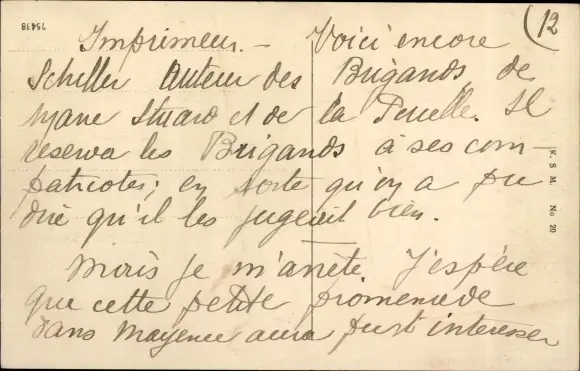 75418
(12
Imprimeur. – Voici encore
Schiller Auteur des Brigands de
Marie Stuard et de la Pucelle. Il
réserva les Brigands à ses com–
patriotes; en sorte qu'on a pu
dire qu'il les jugeait bien.
Mais je m'arrête. J'espère
que cette petite promenade
dans Mayence aura pu t'interesser
K. S. M. No 20